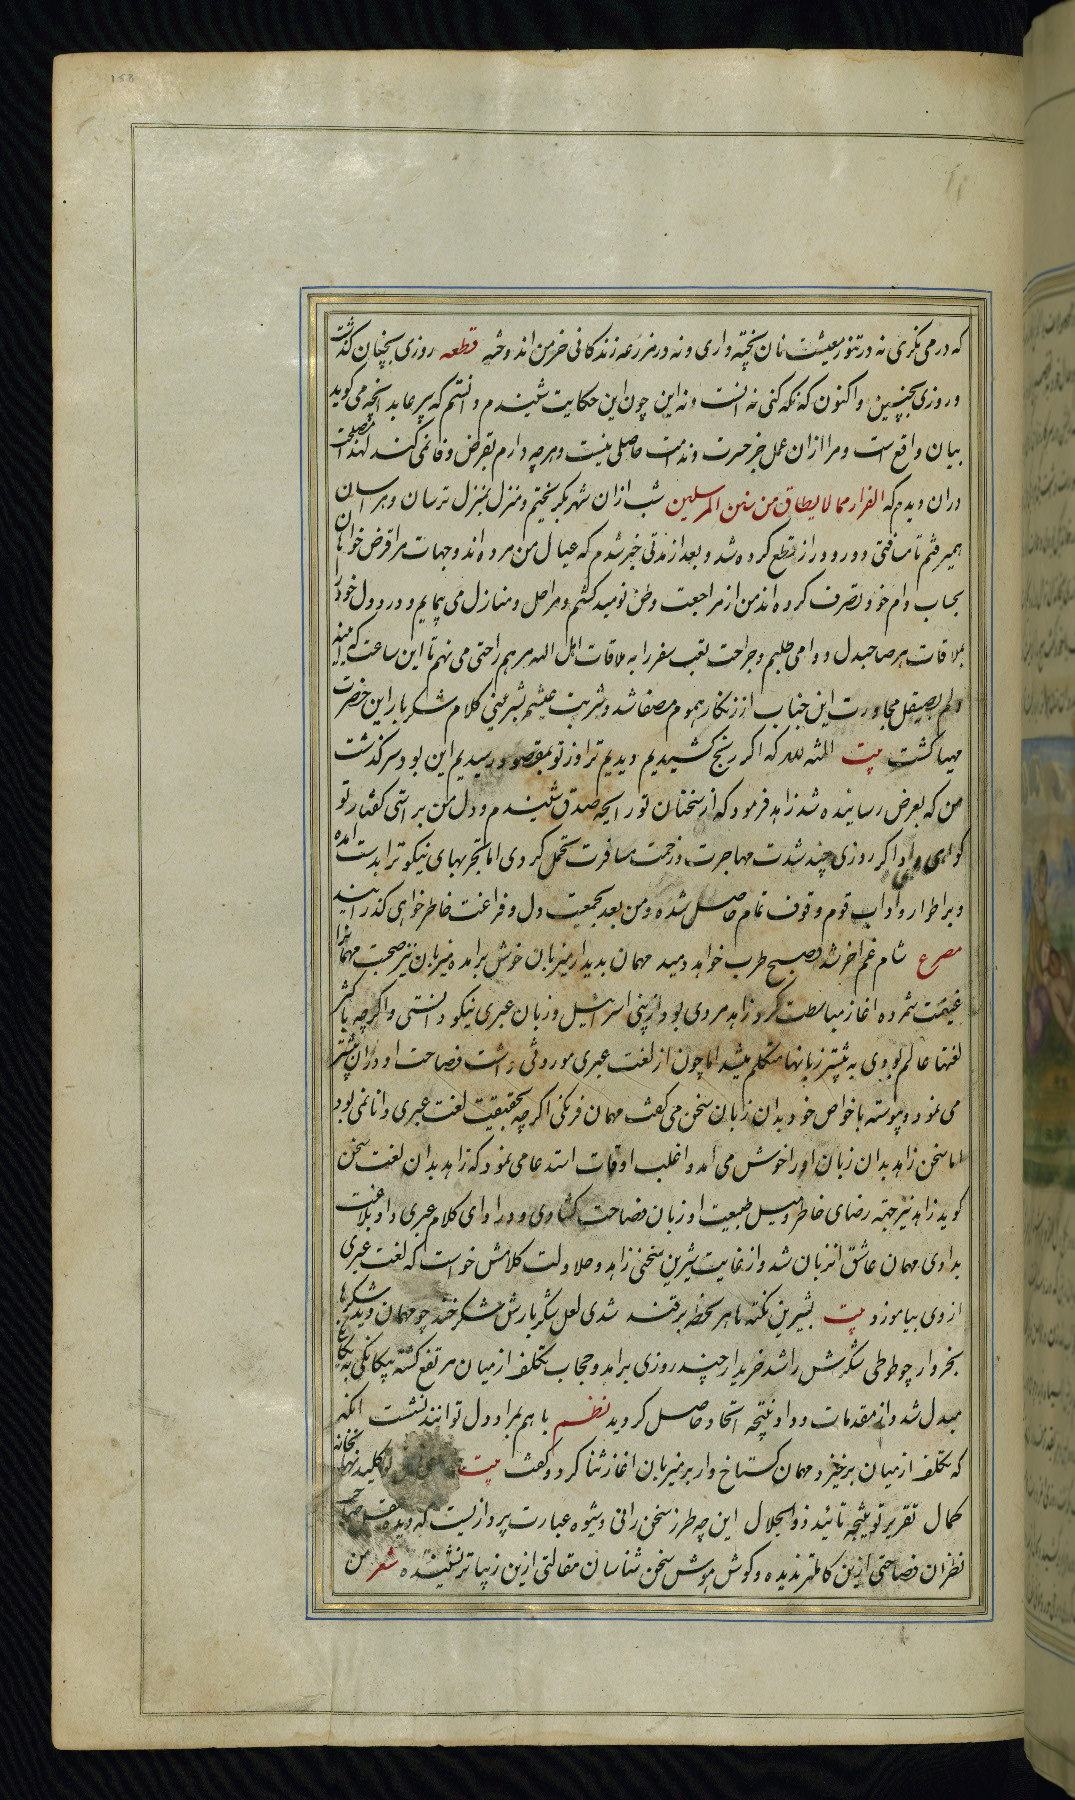 که در می نگری نه در تنور معیشت نان پخته داری و نه در مزرعه زندگانی خرمن اندوخته قطعه روزی بچنان گذشت
و روزی بچنین و اکنون که نگه کنی نه آنست و نه این چون این حکایت شنیدم دانستم که پیر عابد آنچه می گوید
بیان واقع است و مرا ازان عمل جز حسرت و ندامت حاصلی نیست و هر چه دارم بقرض وفا نمی کند لهذا مصلحت
دران دیدم که الفرار مما لا یطاق من سنن المرسلین شب ازان شهر بگریختم و منزل بمنزل ترسان و هراسان
همیرفتم تا مسافتی دور و دراز قطع کرده شد و بعد از مدتی خبر شدم که عیال من مرده اند و جهات مرا قرض خواهان
بحساب وام خود تصرف کرده اند من از مراجعت وطن نومید گشتم و مراحل و منازل می پیمایم و درد دل خود را
بملاقات هر صاحبدل دوا می طلبم و جراحت تعب سفر را به ملاقات اهل الله مرهم راحتی می نهم تا این ساعت که آیینه
دلم بصیقل مجاورت این جناب از زنگار هموم مصفا شد و شربت عیشم بشیرینی کلام شکربار این حضرت
مهیا گشت بیت المنة لله که اگر رنج کشیدیم دیدیم ترا وز تو بمقصود رسیدیم این بود سرگذشت
من که بعرض رسانیده شد زاهد فرمود که از سخنان تو رایحه صدق شنیدم و دل من براستی گفتار تو
گواهی داد اگر روزی چند شدت مهاجرت و زحمت مسافرت تحمل کردی اما تجربهای نیکو ترا بدست آمده
و بر اطوار و آداب قوم وقوف تمام حاصل شده و من بعد بجمعیت دل و فراغت خاطر خواهی گذرانید
مصرع شام غم آخر شد و صبح طرب خواهد دمید مهمان بدیدار میزبان خوش برآمده میزبان نیز صحبت مهمانرا
غنیمت شمرده آغاز مباسطت کرد زاهد مردی بود از بنی اسرائیل و زبان عبری نیکو دانستی و اگرچه باکثر
لغتها عالم بودی به بیشتر زبانها متکلم میشد اما چون از لغت عبری موروثی داشت فصاحت او دران بیشتر
می نمود و پیوسته با خواص خود بدان زبان سخن می گفت مهمان فرنگی اگرچه بحقیقت لغت عبری دانا نمی بود
اما سخن زاهد بدان زبان او را خوش می آمد و اغلب اوقات استدعا می نمود که زاهد بدان لغت سخن
گوید زاهد نیز جهة رضای خاطر و میل طبیعت او زبان فصاحت کشادی و در ادای کلام عبری داد بلاغت
بدادی مهمان عاشق آنزبان شد و از غایت شیرین سخنی زاهد و حلاوت کلامش خواست که لغت عبری
از وی بیاموزد بیت بشیرین نکته ها هر لحظه بر قند شدی لعل شکربارش شکرخند چو مهمان دید شکرها
بخروار چو طوطی شکرش را شد خریدار چند روزی برآمد و حجاب تکلف از میان مرتفع گشته بیگانگی به یگانگی
مبدل شد و از مقدمات وداد نتیجه اتحاد حاصل گردید نظم با هم بمراد دل توانند نشست آنگه
که تکلف از میان برخیزد مهمان گستاخ وار بر میزبان آغاز ثنا کرد و گفت بیت کلید نهانخانه
کمال تقریر تو نتیجه تائید ذوالجلال این چه طرز سخن رانی و شیوه عبارت پردازیست که دیده صاحب
نظران فصاحتی ازین کاملتر ندیده و گوش هوش سخن شناسان مقالتی ازین زیباتر نشنیده شعر من